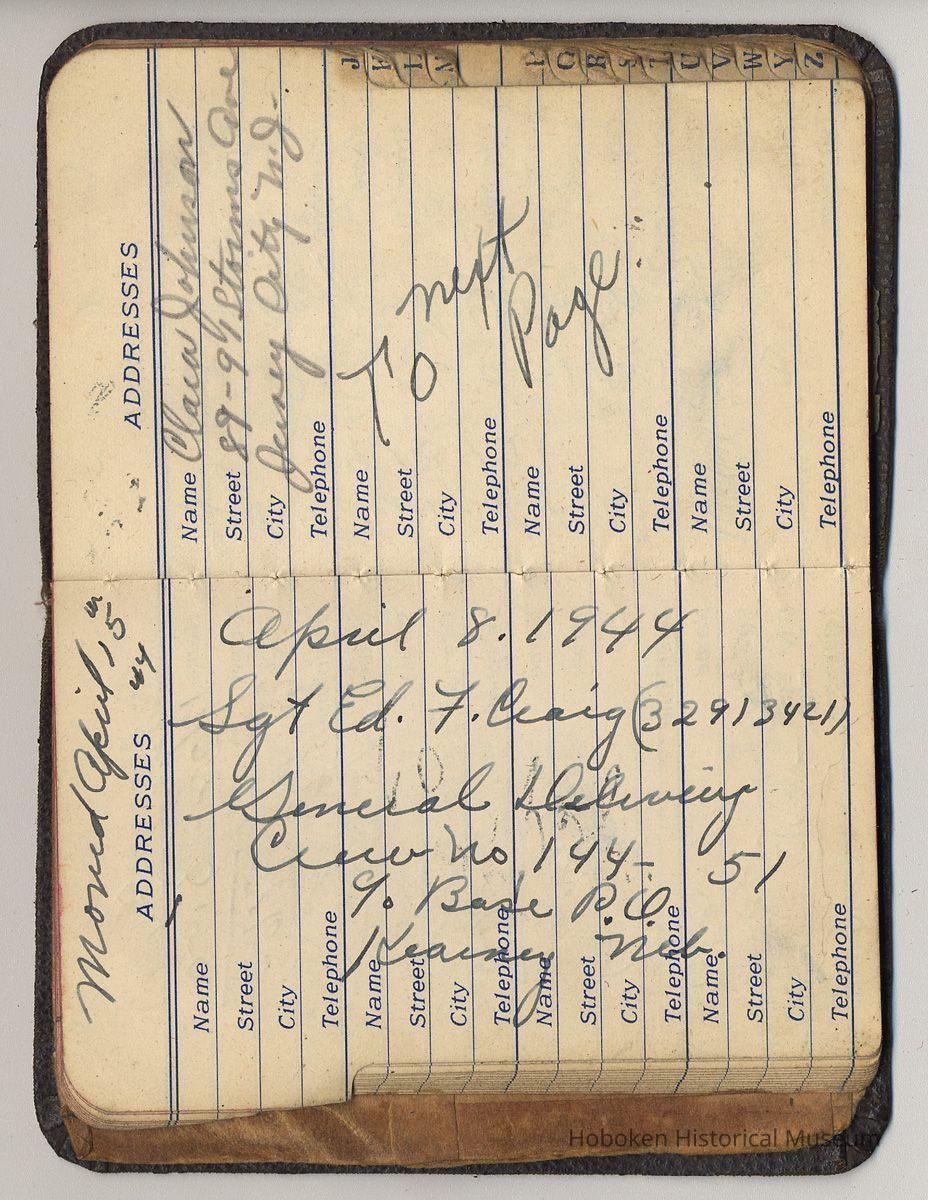 Moved April, 15th
44
ADDRESSES
April 8. 1944
Sgt Ed. F. Craig (32913421)
General Delivery
Crew No 144-51
% Base P.O.
Kearney Neb.
Name
Street
City
Telephone
Name
Street
City
Telephone
Name
Street
City
Telephone
Name
Street
City
Telephone
ADDRESSES
Name Clara Johnson
Street 89-91 Storms Ave
City Jersey City N.J.
Telephone
Name
Street
City
Telephone
To next
Page
Name
Street
City
Telephone
Name
Street
City
Telephone
J
L
N
Q
R
S
T
U
V
W
Y
Z
Hoboken Historical Museum